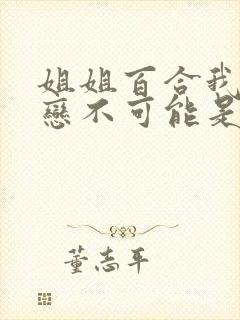 姐姐百合我
戀不可能是
董志平